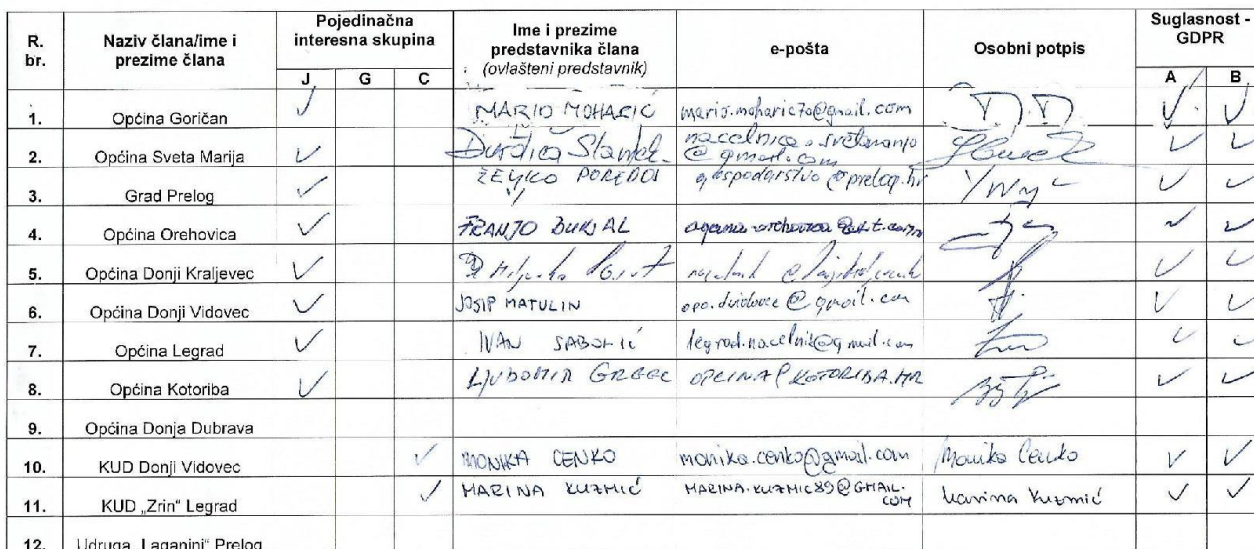 R. br.
Naziv člana/ime i prezime člana
Pojedinačna interesna skupina
J G C
Ime i prezime predstavnika člana
(ovlašteni predstavnik)
e-pošta
Osobni potpis
Suglasnost - GDPR
A B
1. Općina Goričan MARIO MOHARIĆ mario.moharic70@gmail.com
2. Općina Sveta Marija Đurđica Slamek
@gmail.com
3. Grad Prelog ŽELJKO POREDOŠ gospodarstvo@prelog.hr
4. Općina Orehovica FRANJO BUKAL
5. Općina Donji Kraljevec
6. Općina Donji Vidovec JOSIP MATULIN
7. Općina Legrad IVAN SABOLIĆ legrad.nacelnik@gmail.com
8. Općina Kotoriba LJUBOMIR GRGEC OPCINA@KOTORIBA.HR
9. Općina Donja Dubrava
10. KUD Donji Vidovec MONIKA CENKO monika.cenko@gmail.com Monika Cenko
11. KUD „Zrin“ Legrad MARINA KUZMIĆ MARINA.KUZMIC89@GMAIL.COM Marina Kuzmić
12. Udruga „Laganini“ Prelog